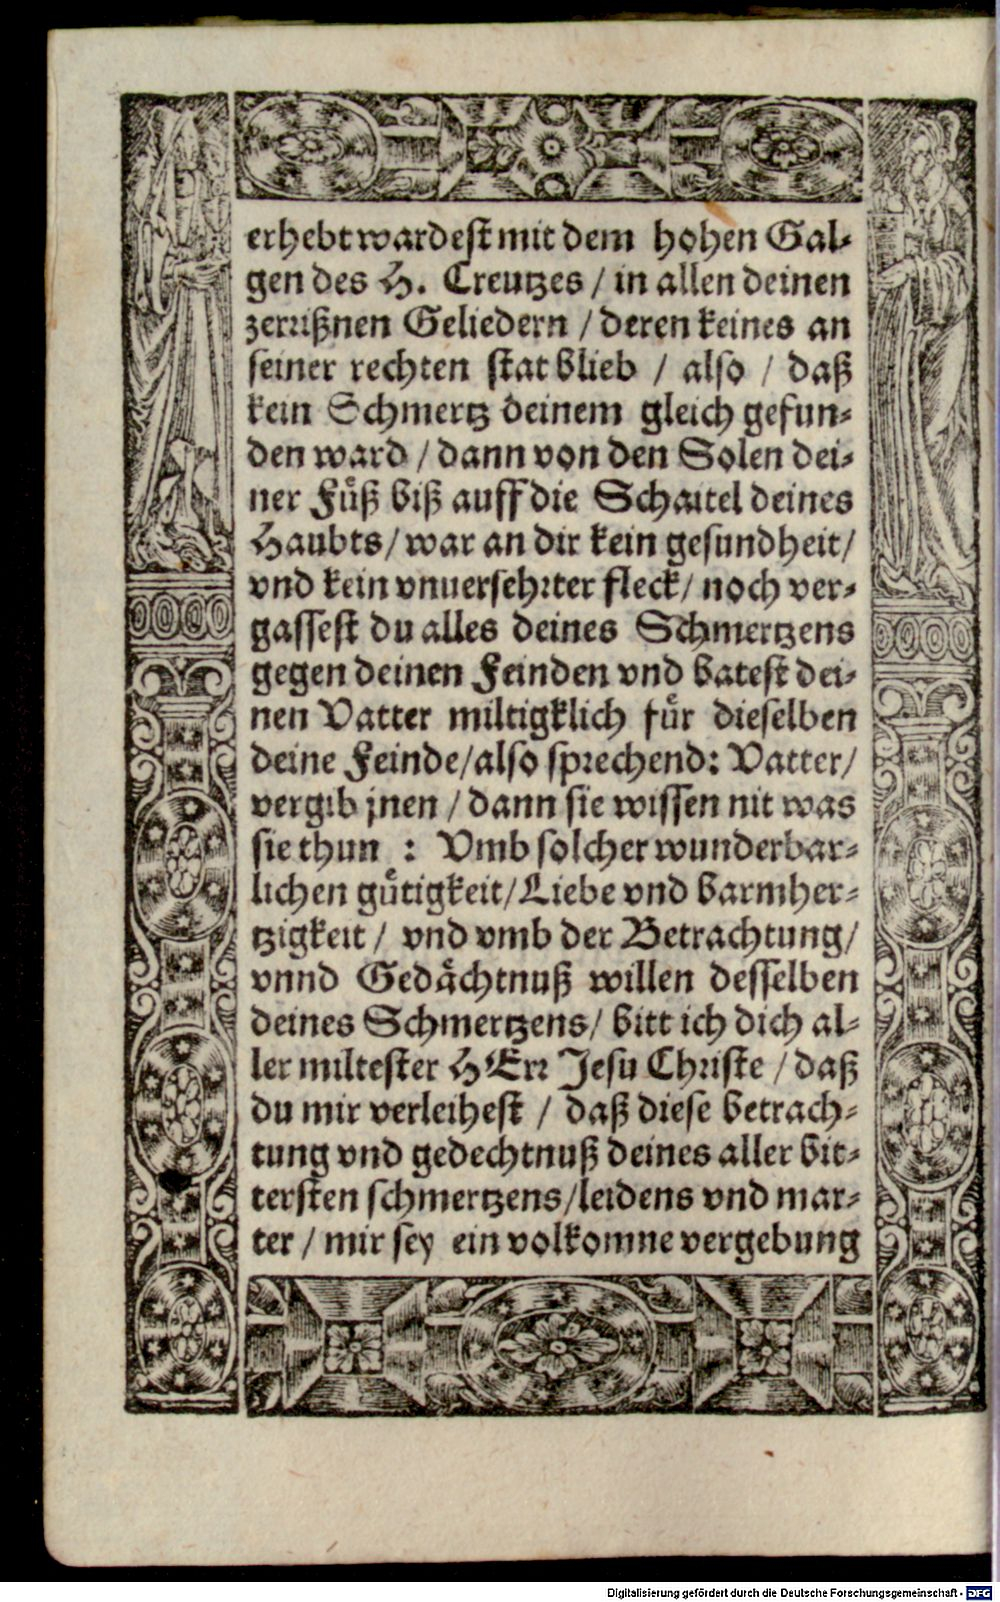 erhebt wardest mit dem hohen Gal-
gen des H. Creutzes / in allen deinen
zerrißnen Geliedern / deren keines an
seiner rechten stat blieb / also / daß
kein Schmertz deinem gleich gefun-
den ward / dann von den Solen dei-
ner Füß biß auff die Schaitel deines
Haubts / war an dir kein gesundheit /
vnd kein vnuersehrter fleck / noch ver-
gassest du alles deines Schmertzens
gegen deinen Feinden vnd batest dei-
nen Vatter miltigklich für dieselben
deine Feinde / also sprechend: Vatter /
vergib jnen / dann sie wissen nit was
sie thun : Vmb solcher wunderbar-
lichen gütigkeit / Liebe vnd barmher-
tzigkeit / vnd vmb der Betrachtung /
vnnd Gedächtnuß willen desselben
deines Schmertzens / bitt ich dich al-
ler miltester HErr Jesu Christe / daß
du mir verleihest / daß diese betrach-
tung vnd gedechtnuß deines aller bit-
tersten schmertzens / leidens vnd mar-
ter / mir sey ein volkomne vergebung
Digitalisierung gefördert durch die Deutsche Forschungsgemeinschaft - DFG